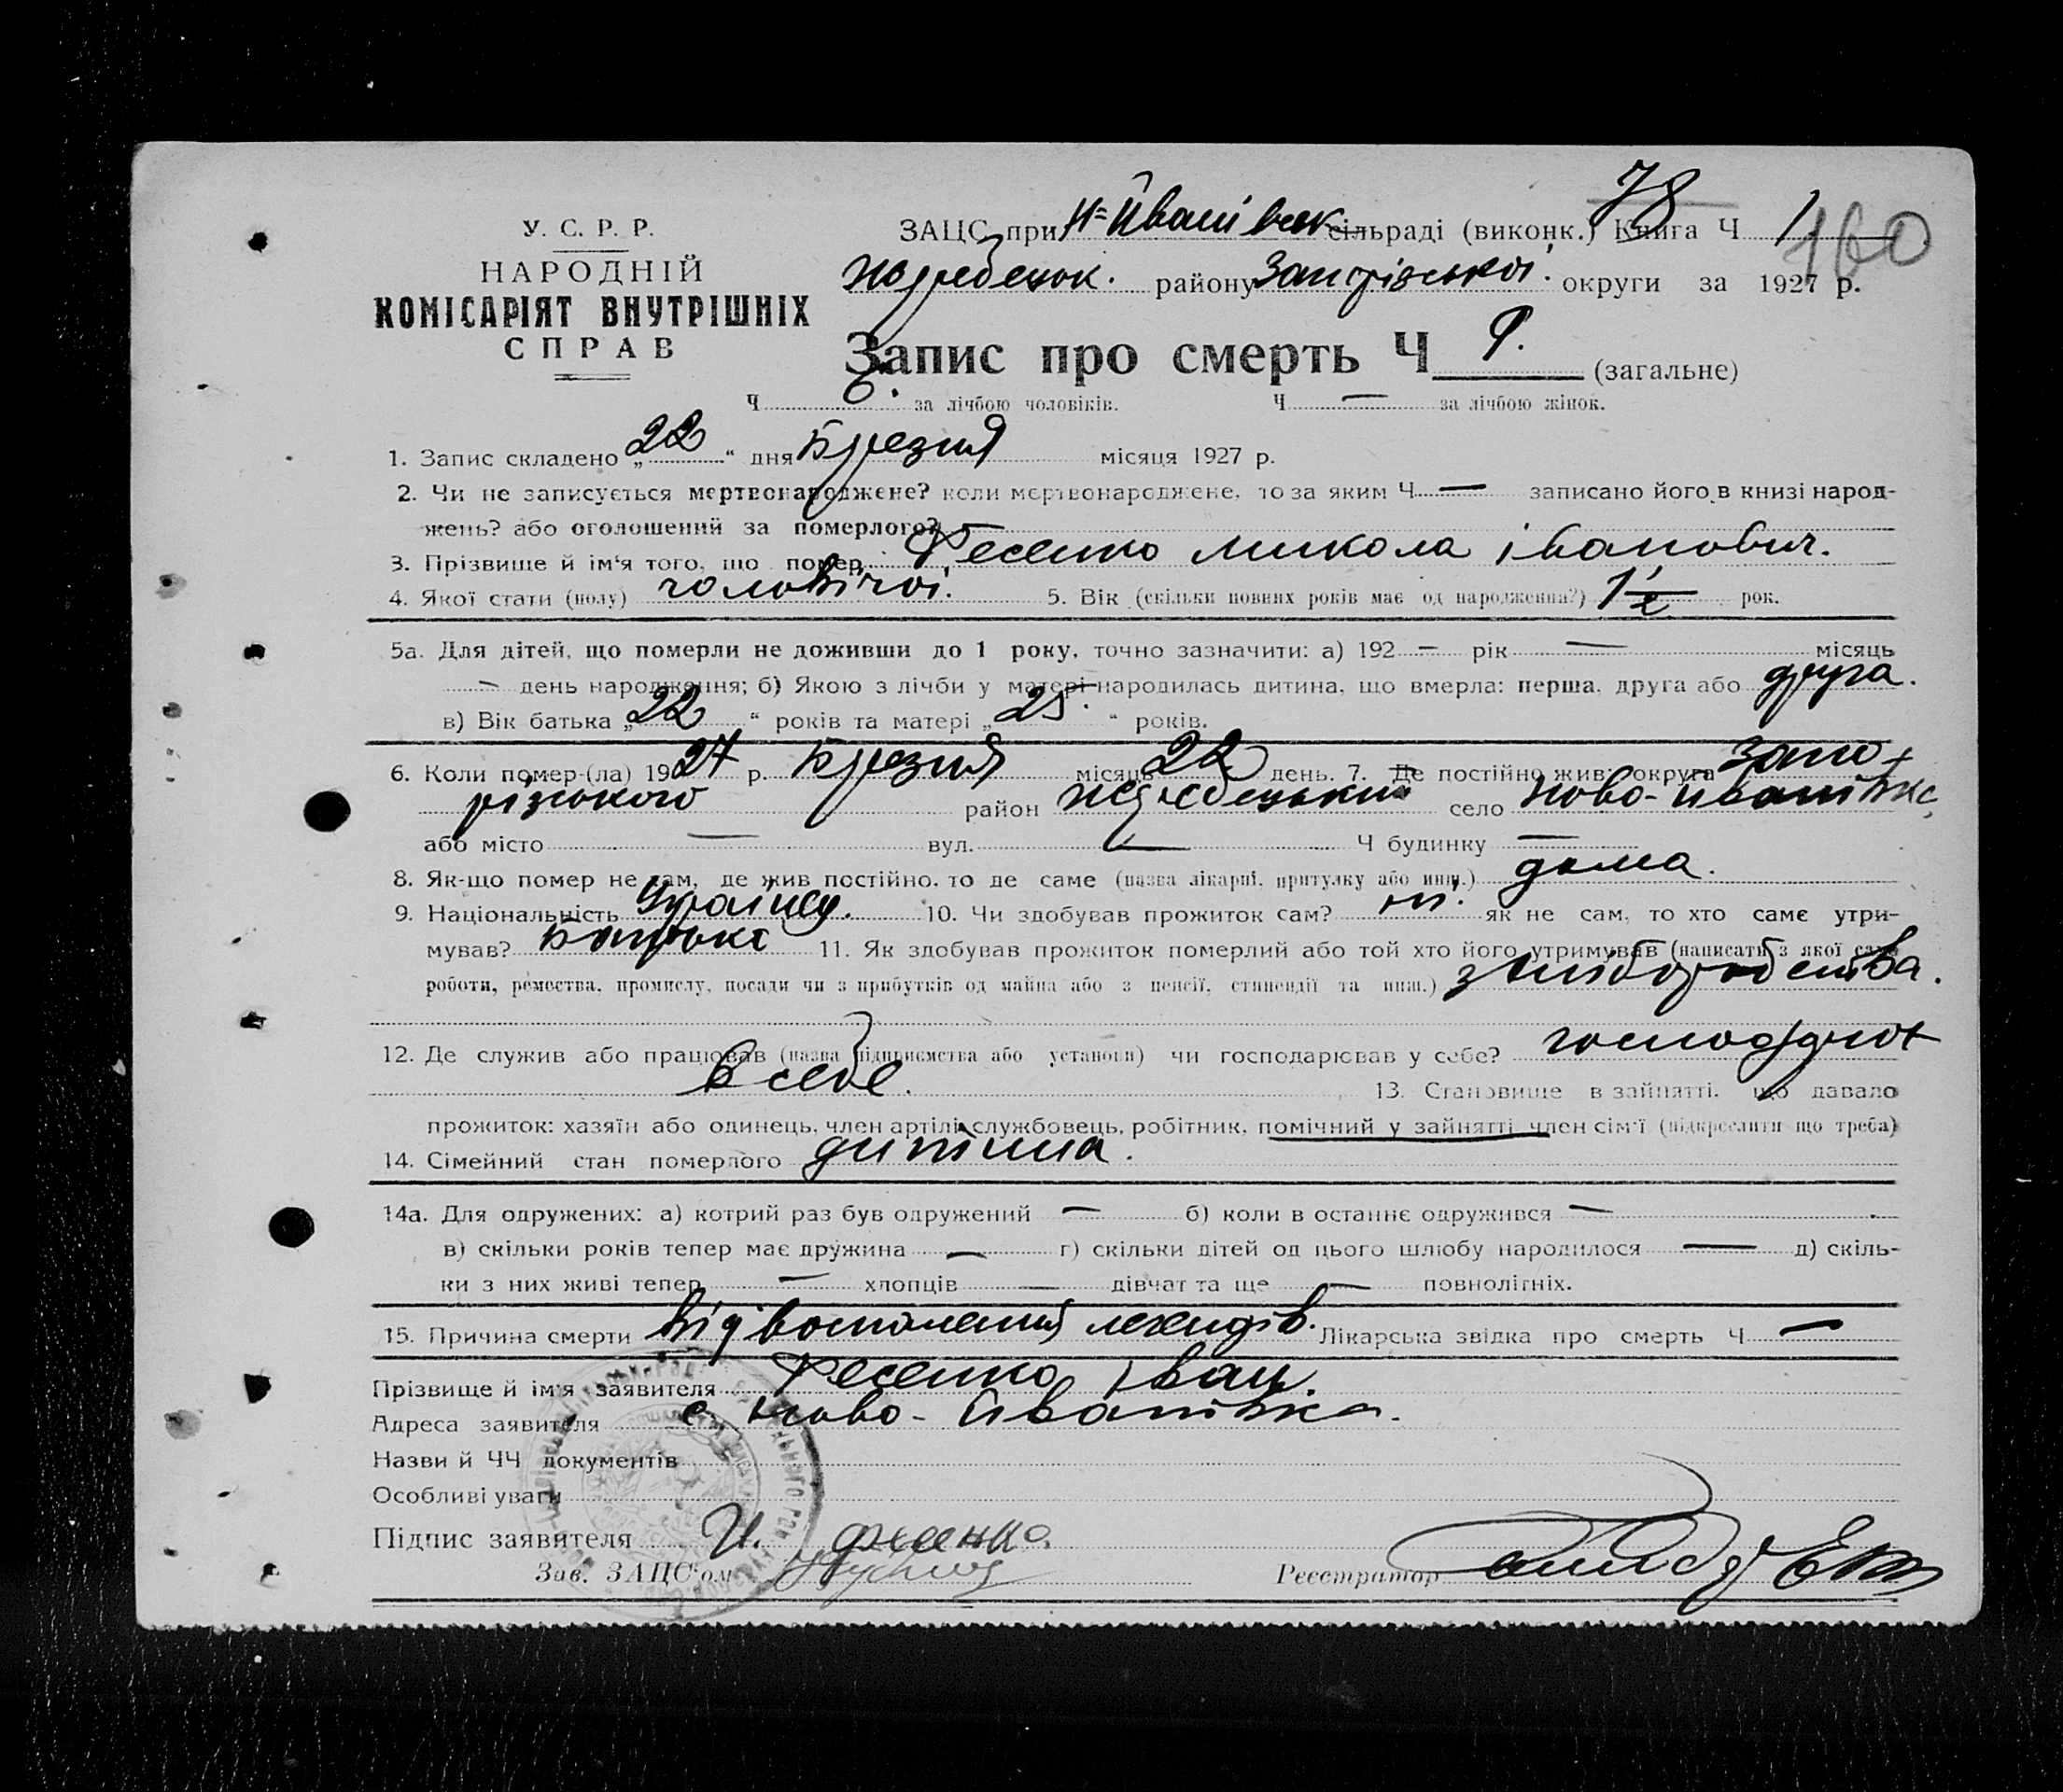 78
У. С. Р. Р.
ЗАЦС при Н=Иванівск сільраді (виконк.) Книга Ч 1. 160
НАРОДНІЙ
Жеребецьк. району Запорізської округи за 1927 р.
КОМІСАРІЯТ ВНУТРІШНІХ
СПРАВ
Запис про смерть Ч 9. (загальне)
Ч 6. за лічбою чоловіків. Ч — за лічбою жінок.
1. Запис складено „22“ дня Березня місяця 1927 р.
2. Чи не записується мертвонароджене? коли мертвонароджене, то за яким Ч — записано його в книзі народ-
жень? або оголошений за померлого? —
3. Прізвище й ім'я того, що помер Фесенко Микола Іванович.
4. Якої стати (полу) чоловічої. 5. Вік (скільки повних років має од народження?) 1 1/2 рок.
5а. Для дітей, що померли не доживши до 1 року, точно зазначити: а) 192 — рік — місяць
— день народження; б) Якою з лічби у матері народилась дитина, що вмерла: перша, друга або друга.
в) Вік батька „22“ років та матері „25.“ років.
6. Коли помер-(ла) 1927 р. Березня місяць 22 день. 7. Де постійно жив: округа Запо-
різького район Жеребецький село Ново-Иванівка,
або місто — вул. — Ч будинку —
8. Як-що помер не там, де жив постійно, то де саме (назва лікарні, притулку або инш.) дома.
9. Національність Українц. 10. Чи здобував прожиток сам? ні. як не сам, то хто саме утри-
мував? Батько 11. Як здобував прожиток померлий або той хто його утримував (написати з якої само
роботи, ремества, промислу, посади чи з прибутків од майна або з пенсії, стипендії та инш.) з хліборобства.
12. Де служив або працював (назва підприємства або установи) чи господарював у себе?
в себе. 13. Становище в зайнятті, що давало
прожиток: хазяїн або одинець, член артілі, службовець, робітник, помічний у зайнятті член сім'ї (підкреслити що треба)
14. Сімейний стан померлого дитина.
14а. Для одружених: а) котрий раз був одружений — б) коли в останнє одружився —
в) скільки років тепер має дружина — г) скільки дітей од цього шлюбу народилося — д) скіль-
ки з них живі тепер — хлопців — дівчат та ще — повнолітніх.
15. Причина смерти Від воспалення легендів. Лікарська звідка про смерть Ч —
Прізвище й ім'я заявителя Фесенко Іван.
Адреса заявителя с. Ново-Иванівка.
Назви й ЧЧ документів
Особливі уваги
Підпис заявителя И. Фесенко
Зав. ЗАЦС'ом Реєстратор